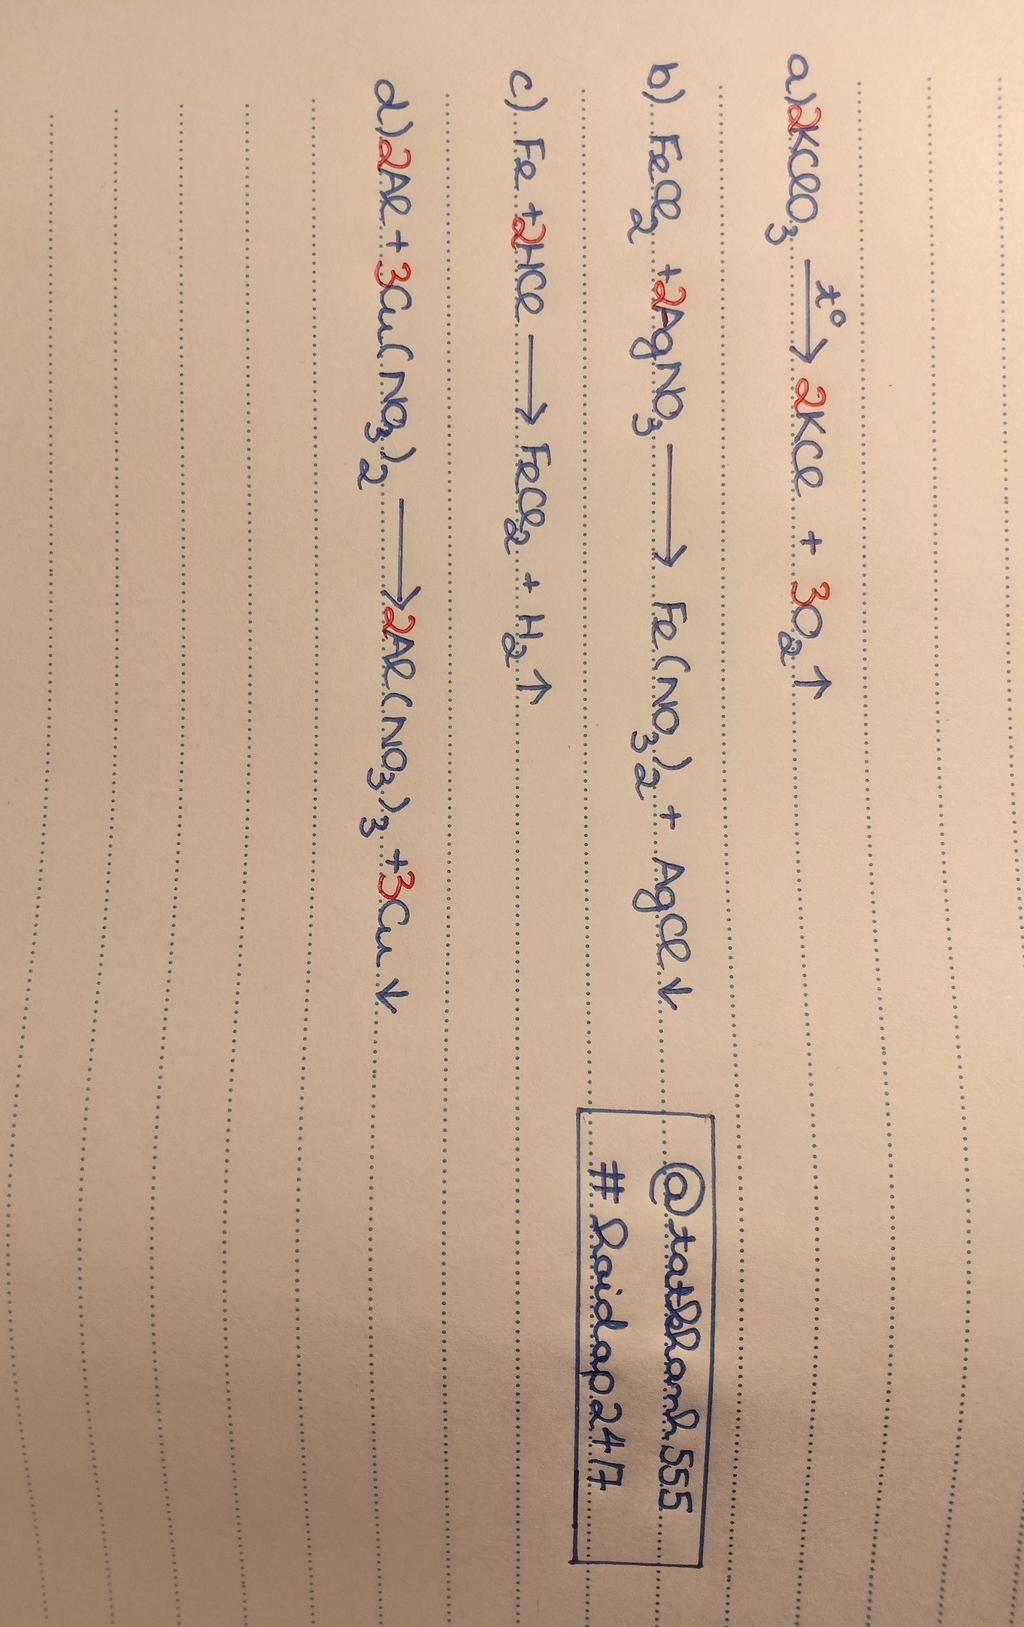 a) 2KClO₃ —t°→ 2KCl + 3O₂↑
b) FeCl₂ + 2AgNO₃ ⟶ Fe(NO₃)₂ + AgCl↓
c) Fe + 2HCl ⟶ FeCl₂ + H₂↑
d) 2Al + 3Cu(NO₃)₂ ⟶ 2Al(NO₃)₃ + 3Cu↓
@tatkhanh555
#hoidap247